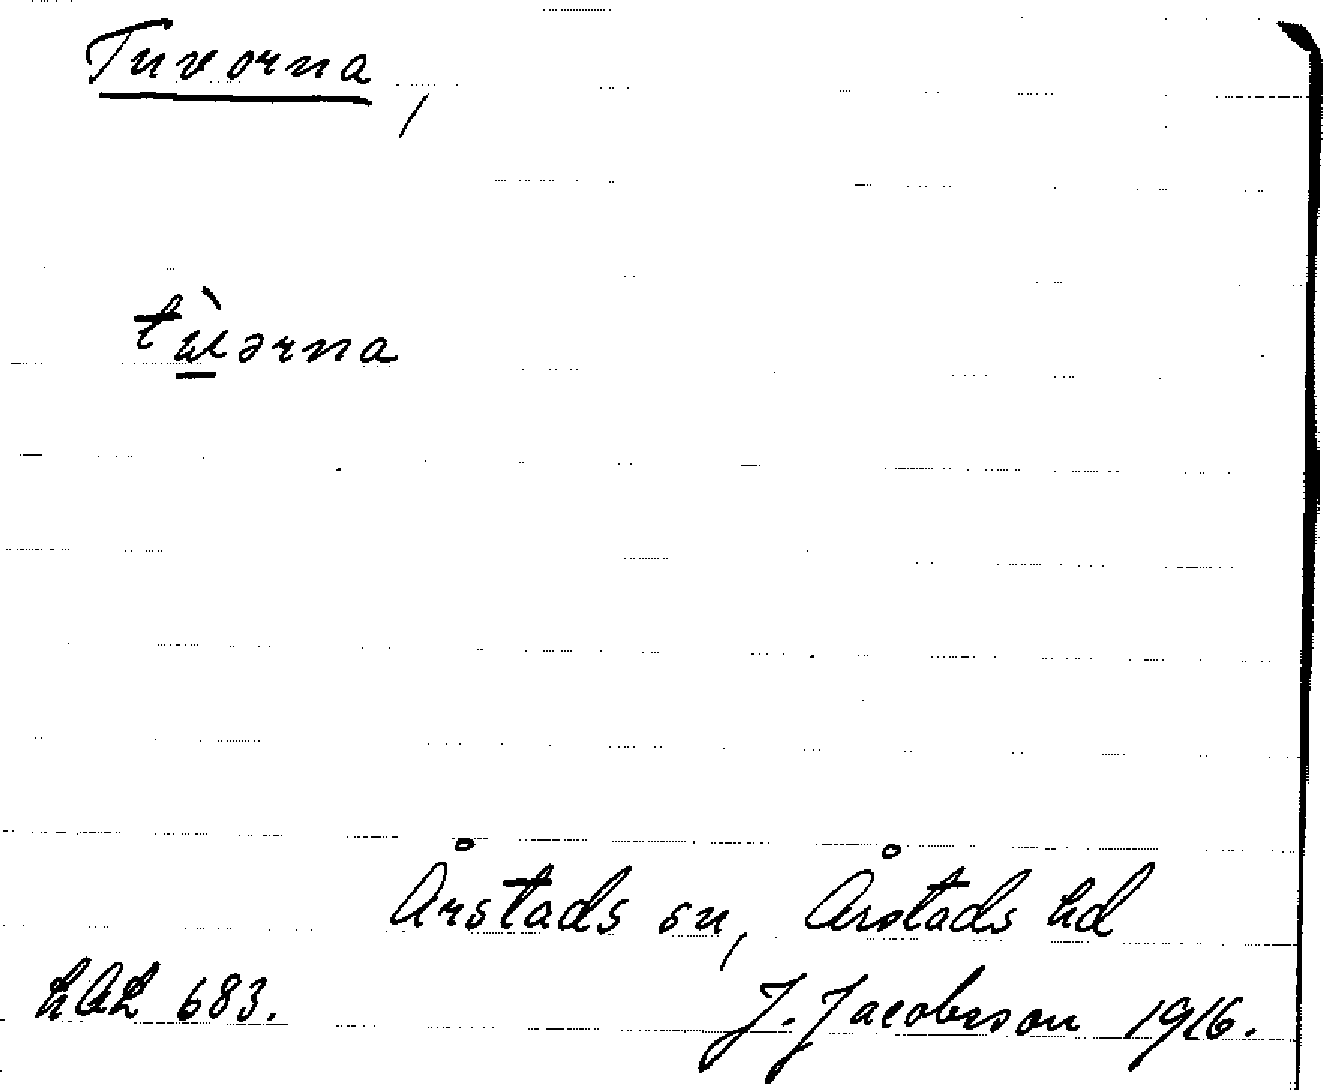 Tuvorna,
tùərna
Årstads sn, Årstads hd
LAL 683. J. Jacobsson 1916.